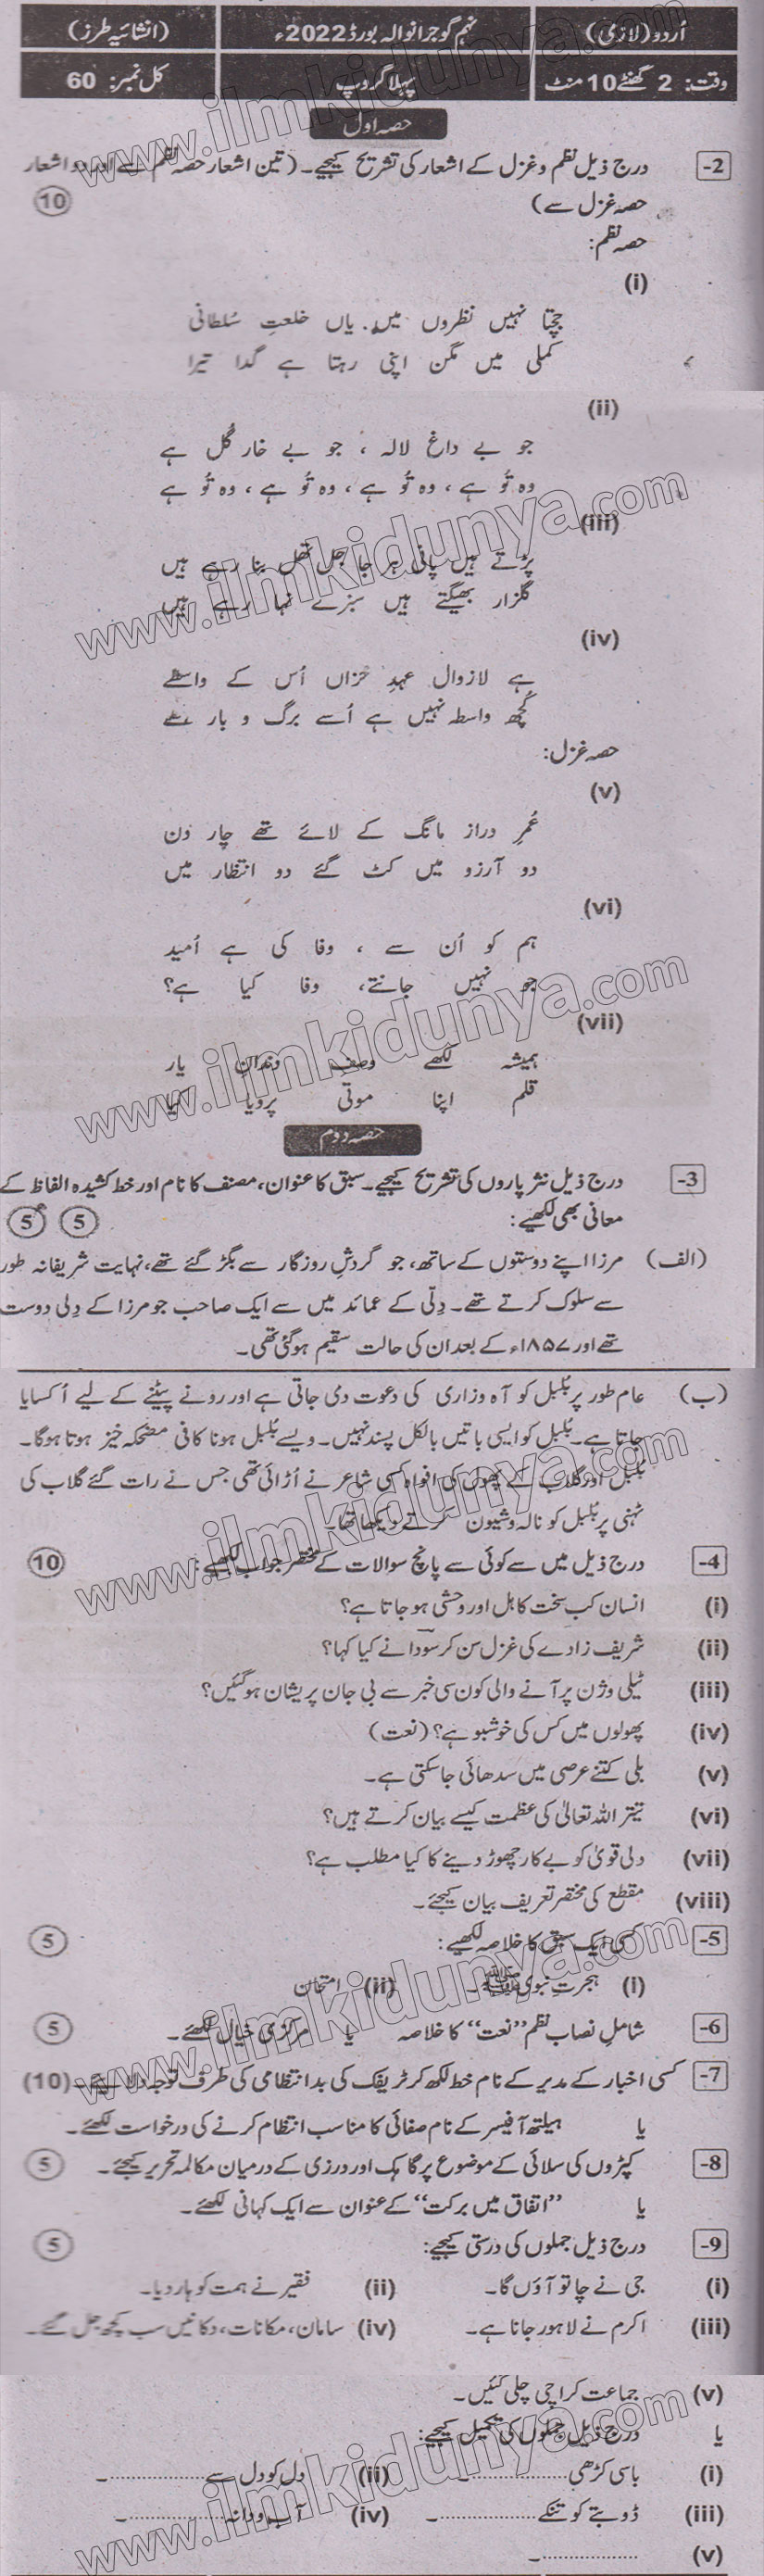 اُردو (لازمی) نہم گوجرانوالہ بورڈ 2022ء (انشائیہ طرز)
وقت: 2 گھنٹے 10 منٹ پہلا گروپ کل نمبر: 60
حصہ اول
-2 درج ذیل نظم و غزل کے اشعار کی تشریح کیجیے۔ (تین اشعار حصہ نظم سے اور دو اشعار
حصہ غزل سے) 10
حصہ نظم:
(i)
جچتا نہیں نظروں میں یاں خلعتِ سُلطانی
کملی میں مگن اپنی رہتا ہے گدا تیرا
(ii)
جو بے داغ لالہ ، جو بے خار گُل ہے
وہ تُو ہے ، وہ تُو ہے ، وہ تُو ہے ، وہ تُو ہے
(iii)
پڑتے ہیں پانی ہر جا جل تھل بنا رہے ہیں
گلزار بھیگتے ہیں سبزے نہا رہے ہیں
(iv)
ہے لازوال عہدِ خزاں اُس کے واسطے
کُچھ واسطہ نہیں ہے اُسے برگ و بار سے
حصہ غزل:
(v)
عُمرِ دراز مانگ کے لائے تھے چار دن
دو آرزو میں کٹ گئے دو انتظار میں
(vi)
ہم کو اُن سے ، وفا کی ہے اُمید
جو نہیں جانتے، وفا کیا ہے؟
(vii)
ہمیشہ لکھے وصفِ دندانِ یار
قلم اپنا موتی پرویا کیا
حصہ دوم
-3 درج ذیل نثر پاروں کی تشریح کیجیے۔ سبق کا عنوان، مصنف کا نام اور خط کشیدہ الفاظ کے
معانی بھی لکھیے: 5 5
(الف) مرزا اپنے دوستوں کے ساتھ، جو گردشِ روزگار سے بگڑ گئے تھے، نہایت شریفانہ طور
سے سلوک کرتے تھے۔ دِلّی کے عمائد میں سے ایک صاحب جو مرزا کے دِلی دوست
تھے اور ۱۸۵۷ء کے بعد ان کی حالت سقیم ہو گئی تھی۔
(ب) عام طور پر بُلبل کو آہ وزاری کی دعوت دی جاتی ہے اور رونے پیٹنے کے لیے اُکسایا
جاتا ہے۔ بُلبل کو ایسی باتیں بالکل پسند نہیں۔ ویسے بُلبل ہونا کافی مضحکہ خیز ہوتا ہوگا۔
بُلبل اور گلاب کے پھول کی افواہ کسی شاعر نے اُڑائی تھی جس نے رات گئے گلاب کی
ٹہنی پر بُلبل کو نالہ و شیون کرتے دیکھا تھا۔
-4 درج ذیل میں سے کوئی سے پانچ سوالات کے مختصر جواب لکھیے: 10
(i) انسان کب سخت کاہل اور وحشی ہو جاتا ہے؟
(ii) شریف زادے کی غزل سن کر سوداؔ نے کیا کہا؟
(iii) ٹیلی وژن پر آنے والی کون سی خبر سے بی جان پریشان ہو گئیں؟
(iv) پھولوں میں کس کی خوشبو ہے؟ (نعت)
(v) بلی کتنے عرصے میں سدھائی جا سکتی ہے۔
(vi) تیتر اللہ تعالیٰ کی عظمت کیسے بیان کرتے ہیں؟
(vii) دلی قویٰ کو بے کار چھوڑ دینے کا کیا مطلب ہے؟
(viii) مقطع کی مختصر تعریف بیان کیجئے۔
-5 کسی ایک سبق کا خلاصہ لکھیے: 5
(i) ہجرتِ نبوی ﷺ۔ (ii) امتحان
-6 شاملِ نصاب نظم ”نعت“ کا خلاصہ یا مرکزی خیال لکھئے۔ 5
-7 کسی اخبار کے مدیر کے نام خط لکھ کر ٹریفک کی بدانتظامی کی طرف توجہ دلائیے۔ (10)
یا ہیلتھ آفیسر کے نام صفائی کا مناسب انتظام کرنے کی درخواست لکھئے۔
-8 کپڑوں کی سلائی کے موضوع پر گاہک اور درزی کے درمیان مکالمہ تحریر کیجئے۔ 5
یا ”اتفاق میں برکت“ کے عنوان سے ایک کہانی لکھئے۔
-9 درج ذیل جملوں کی درستی کیجیے: 5
(i) جی نے چاہا تو آؤں گا۔ (ii) فقیر نے ہمت کو ہار دیا۔
(iii) اکرم نے لاہور جانا ہے۔ (iv) سامان، مکانات، دکانیں سب کچھ جل گئے۔
(v) جماعت کراچی چلی گئیں۔
یا درج ذیل جملوں کی تکمیل کیجیے:
(i) باسی کڑھی .................. (ii) دل کو دل سے ..................۔
(iii) ڈوبتے کو تنکے ..................۔ (iv) آب و دانہ ..................۔
(v) ..................۔
www.ilmkidunya.com
www.ilmkidunya.com
www.ilmkidunya.com
www.ilmkidunya.com
www.ilmkidunya.com
www.ilmkidunya.com